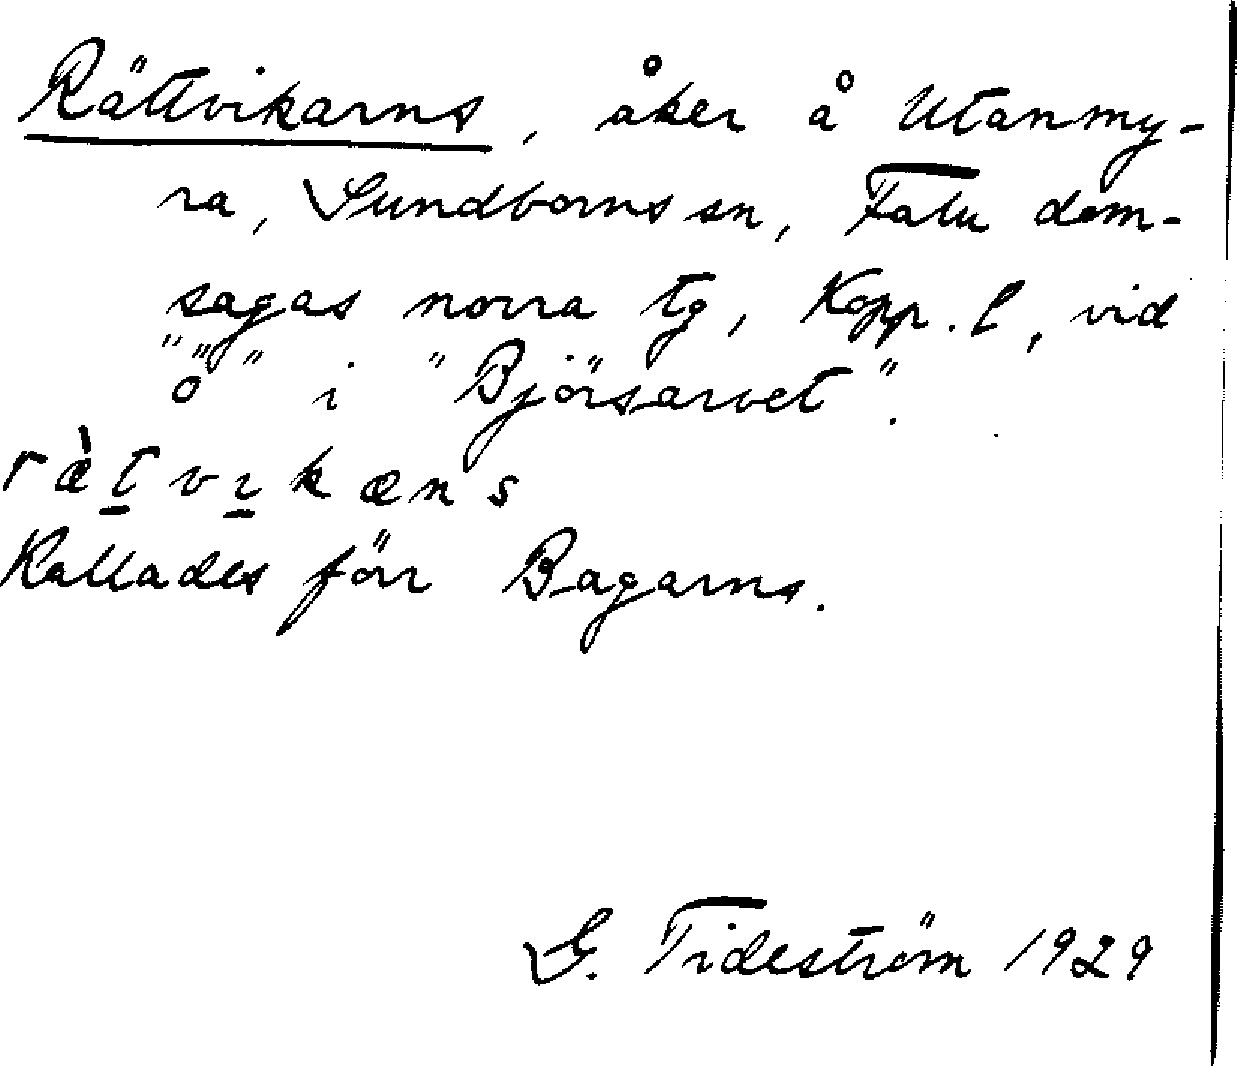 Rättvikarns, åker å Utanmy-
ra, Sundborns sn, Falu dom-
sagas norra tg, Kopp. l, vid
"ö" i "Björsarvet".
ræ̀tvıkæns
Kallades förr Bagarns.
G. Tideström 1929